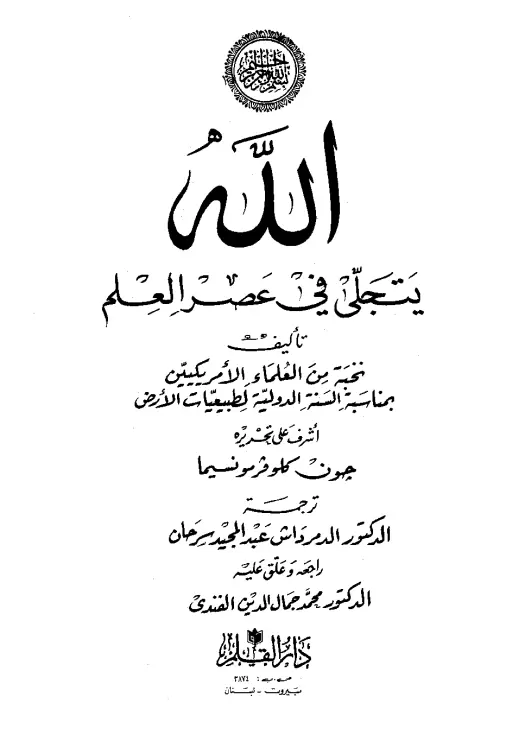 الله
يتجلى في عصر العلم
تأليف
نخبة من العلماء الأمريكيين
بمناسبة السنة الدولية لطبيعيات الأرض
أشرف على تحريره
جون كلوفر مونسيما
ترجمة
الدكتور الدمرداش عبد المجيد سرحان
راجعه وعلق عليه
الدكتور محمد جمال الدين الفندي
دار القلم
ص.ب: ٣٨٧٤
بيروت - لبنان